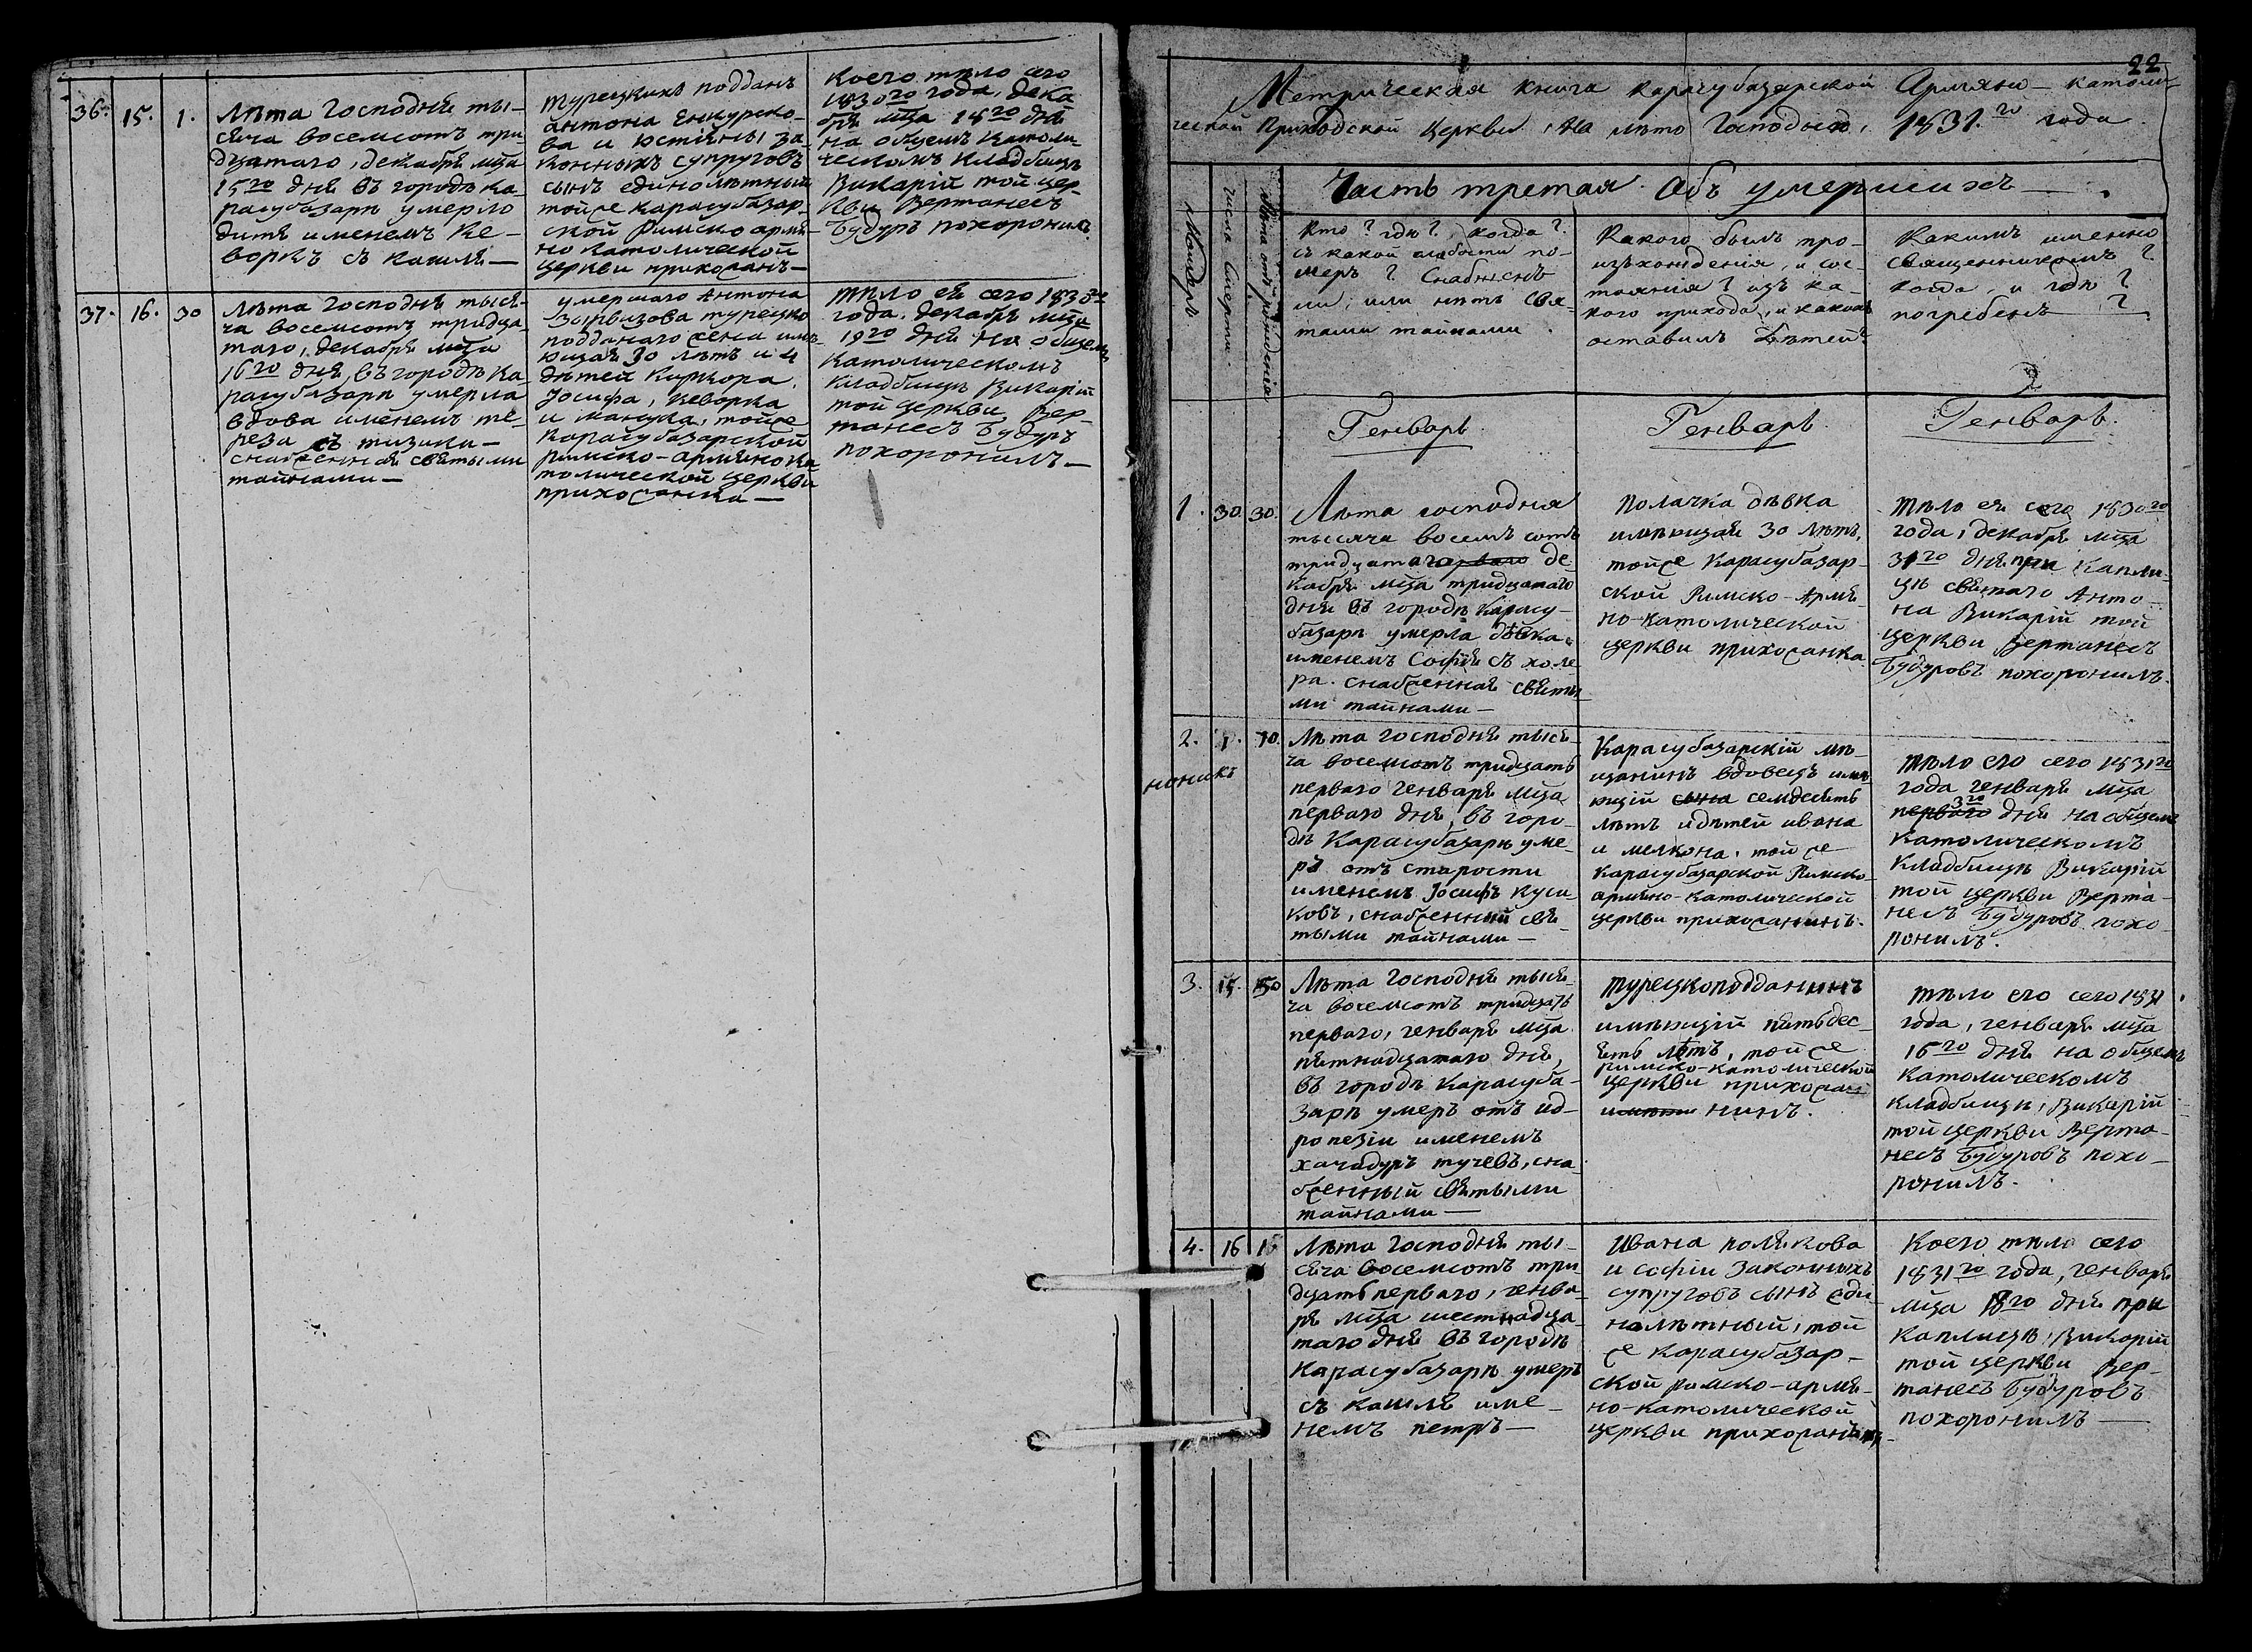 36. 15. 1.
Лѣта Господня ты-
сяча восемсотъ три-
дцатаго, декабря мца
15го дня въ городѣ ка-
расубазарѣ умерло
дитя именемъ Ке-
воркъ съ кашля —
турецкихъ поддан.
антона
ва и Юстіяны за-
конныхъ супруговъ
сынъ единолѣтный
тойже карасубазар-
ской Римско армя-
но католической
церкви прихожанъ —
Коего тѣло сего
1830го года, дека
бря мца 18го дня
на общемъ католи-
ческомъ кладбищѣ
Викарій той цер-
кви Вертанесъ
Будуръ похоронилъ.
37. 16. 30
Лѣта Господня тыся-
ча восемсотъ тридца-
таго, декабря мца
16го дня, въ городѣ Ка-
расубазарѣ умерла
вдова именемъ те-
реза съ тизики —
снабженная святыми
тайнами —
умершаго Антона
турецко
подданаго жена имѣ-
ющая 30 лѣтъ и 4
дѣтей Киркора,
Іосифа, Кеворка
и манука, тойже
Карасубазарской
римско-армяно ка
толической церкви
прихожанка —
тѣло ея сего 1830го
года, декабря мца
19го дня на общемъ
католическомъ
кладбищѣ Викарій
той церкви Вер-
танесъ Будуръ
похоронилъ —
22
Метрическая книга карасубазарской Армяно-католи-
ческой Приходской Церкви, на лѣто Господне, 1831.го года
Часть третая. Объ умершихъ — .
Номеръ
числа смерти.
Лѣта отъ рожденія
Кто? гдѣ? когда?
съ какой слабости по-
меръ? Снабженъ
ли, или нѣтъ свя-
тами тайнами.
Какого былъ про-
изъхожденія, и сос-
тояния? изъ ка-
кого прихода, и какихъ
оставилъ дѣтей?
Какимъ именно
священникомъ?
когда, и гдѣ?
погребенъ ?
Генварь.
Генварь.
Генварь.
1. 30. 30.
Лѣта господня
тысяча восемъ сотъ
тридцатаго де-
кабря мца тридцатаго
дня въ городѣ Карасу-
базарѣ умерла дѣвка
именемъ Софія съ холе-
ра. снабженная святы-
ми тайнами —
Полачка дѣвка
имѣющая 30 лѣтъ,
тойже Карасубазар-
ской Римско-Армя-
но-католической
церкви прихожанка
Тѣло ея сего 1830го
года, декабря мца
31го дня при Капли-
цѣ святаго Анто-
на Викарій той
церкви Вертанесъ
Будуровъ похоронилъ.
2. 1. 70
ноникъ
Лѣта Господня тыся-
ча восемсотъ тридцать
перваго генваря мца
перваго дня, въ горо-
дѣ Карасубазарѣ уме-
ръ отъ старости
именемъ Іосифъ Куси-
ковъ, снабженный свя-
тыми тайнами —
Карасубазарскій мѣ-
щанинъ вдовецъ имѣ-
ющій сына семдесять
лѣтъ идѣтей ивана
и мелкона, тойже
Карасубазарской Римско-
армяно-католической
церкви прихожанинъ.
тѣло его сего 1831го
года генваря мца
перваго 3го дня на общемъ
католическомъ
кладбищѣ Викарій
той церкви Верта-
несъ Будуровъ похо-
ронилъ.
3. 15. 50
Лѣта Господня тыся-
ча восемсотъ тридцать
перваго, генваря мца
пятнадцатаго дня,
въ городѣ Карасуба-
зарѣ умеръ отъ ид-
ропезіи именемъ
хачадуръ тучевъ, сна-
бженный святыми
тайнами —
турецкоподданинъ
имѣющій пятьдес-
ять лѣтъ, тойже
римско-католической
церкви прихожа-
нинъ.
тѣло его сего 1831
года, генваря мца
16го дня на общемъ
католическомъ
кладбищѣ, Викарій
той церкви Верта-
несъ Будуровъ похо-
ронилъ.
4. 16
Лѣта Господня ты-
сяча восемсотъ три-
дцать перваго, генва-
ря мца шестнадца-
таго дня въ городѣ
Карасубазарѣ умеръ
съ кашля име-
немъ петръ —
Ивана полякова
и софіи законныхъ
супруговъ сынъ еди-
нолѣтный, той
же Карасубазар-
ской римско-армя-
но-католической
церкви прихожанъ
Коего тѣло сего
1831го года, генваря
мца 18го дня при
каплицѣ, Викарій
той церкви Вер-
танесъ Будуровъ
похоронилъ —